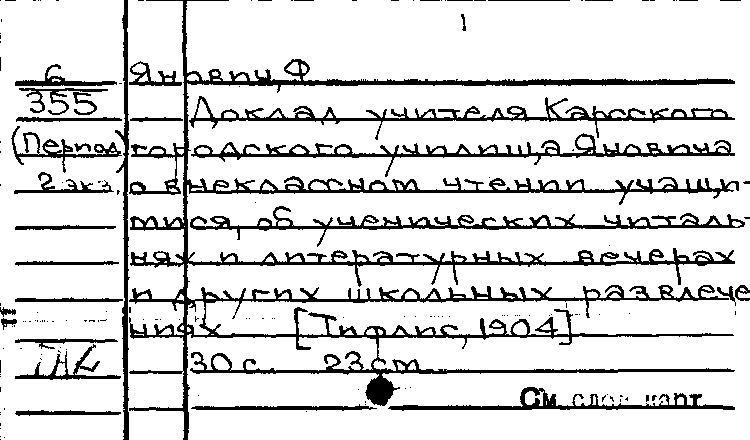 1
6 Янович, Ф
355 Доклад учителя Карсского
(Период) городского училища Яновича
2 экз. о внеклассном чтении учащи-
мися, об ученических читаль-
нях и литературных вечерах
и других школьных развлече
ниях [Тифлис, 1904]
30 с. 23 cm
См след карт